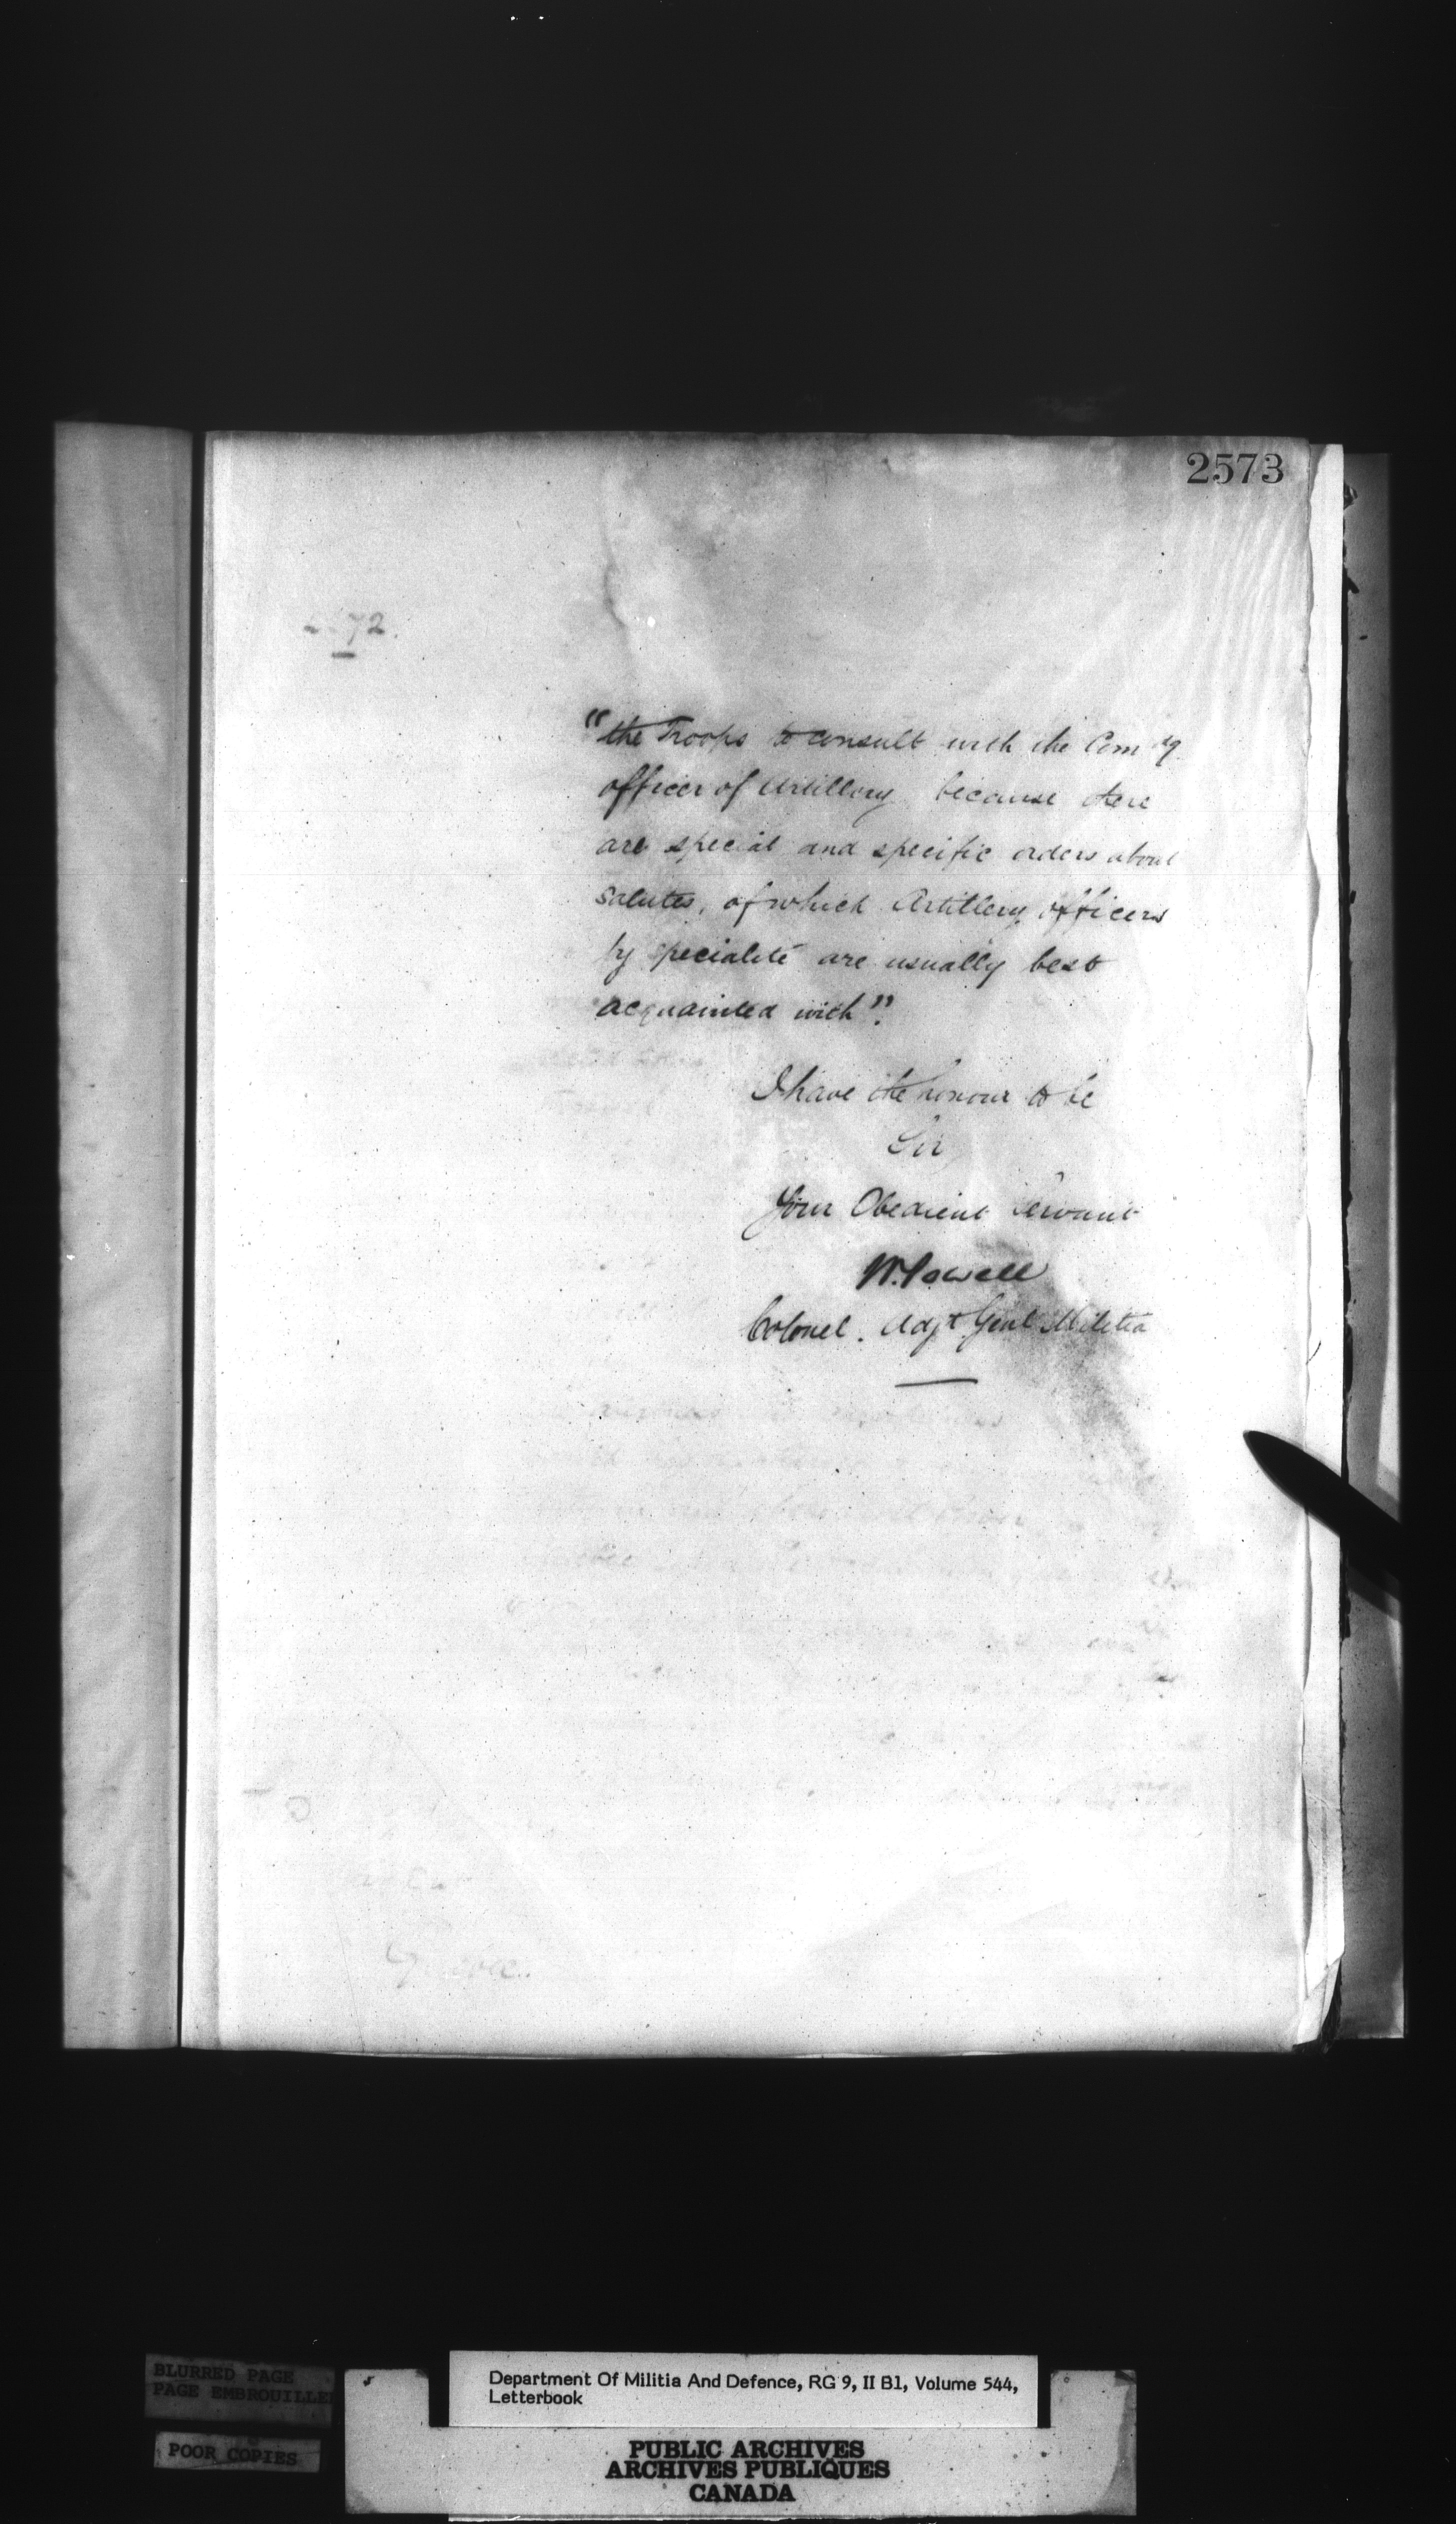 2573
72.
"the Troops to consult with the Comdg
officer of Artillery because there
are special and specific orders about
salutes, of which Artillery officers
by specialité are usually best
acquainted with".
I have the honour to be
Sir
Your Obedient Servant
W. Powell
Colonel. Adjt Genl Militia
BLURRED PAGE
PAGE EMBROUILLEE
POOR COPIES
Department Of Militia And Defence, RG 9, II B1, Volume 544,
Letterbook
PUBLIC ARCHIVES
ARCHIVES PUBLIQUES
CANADA